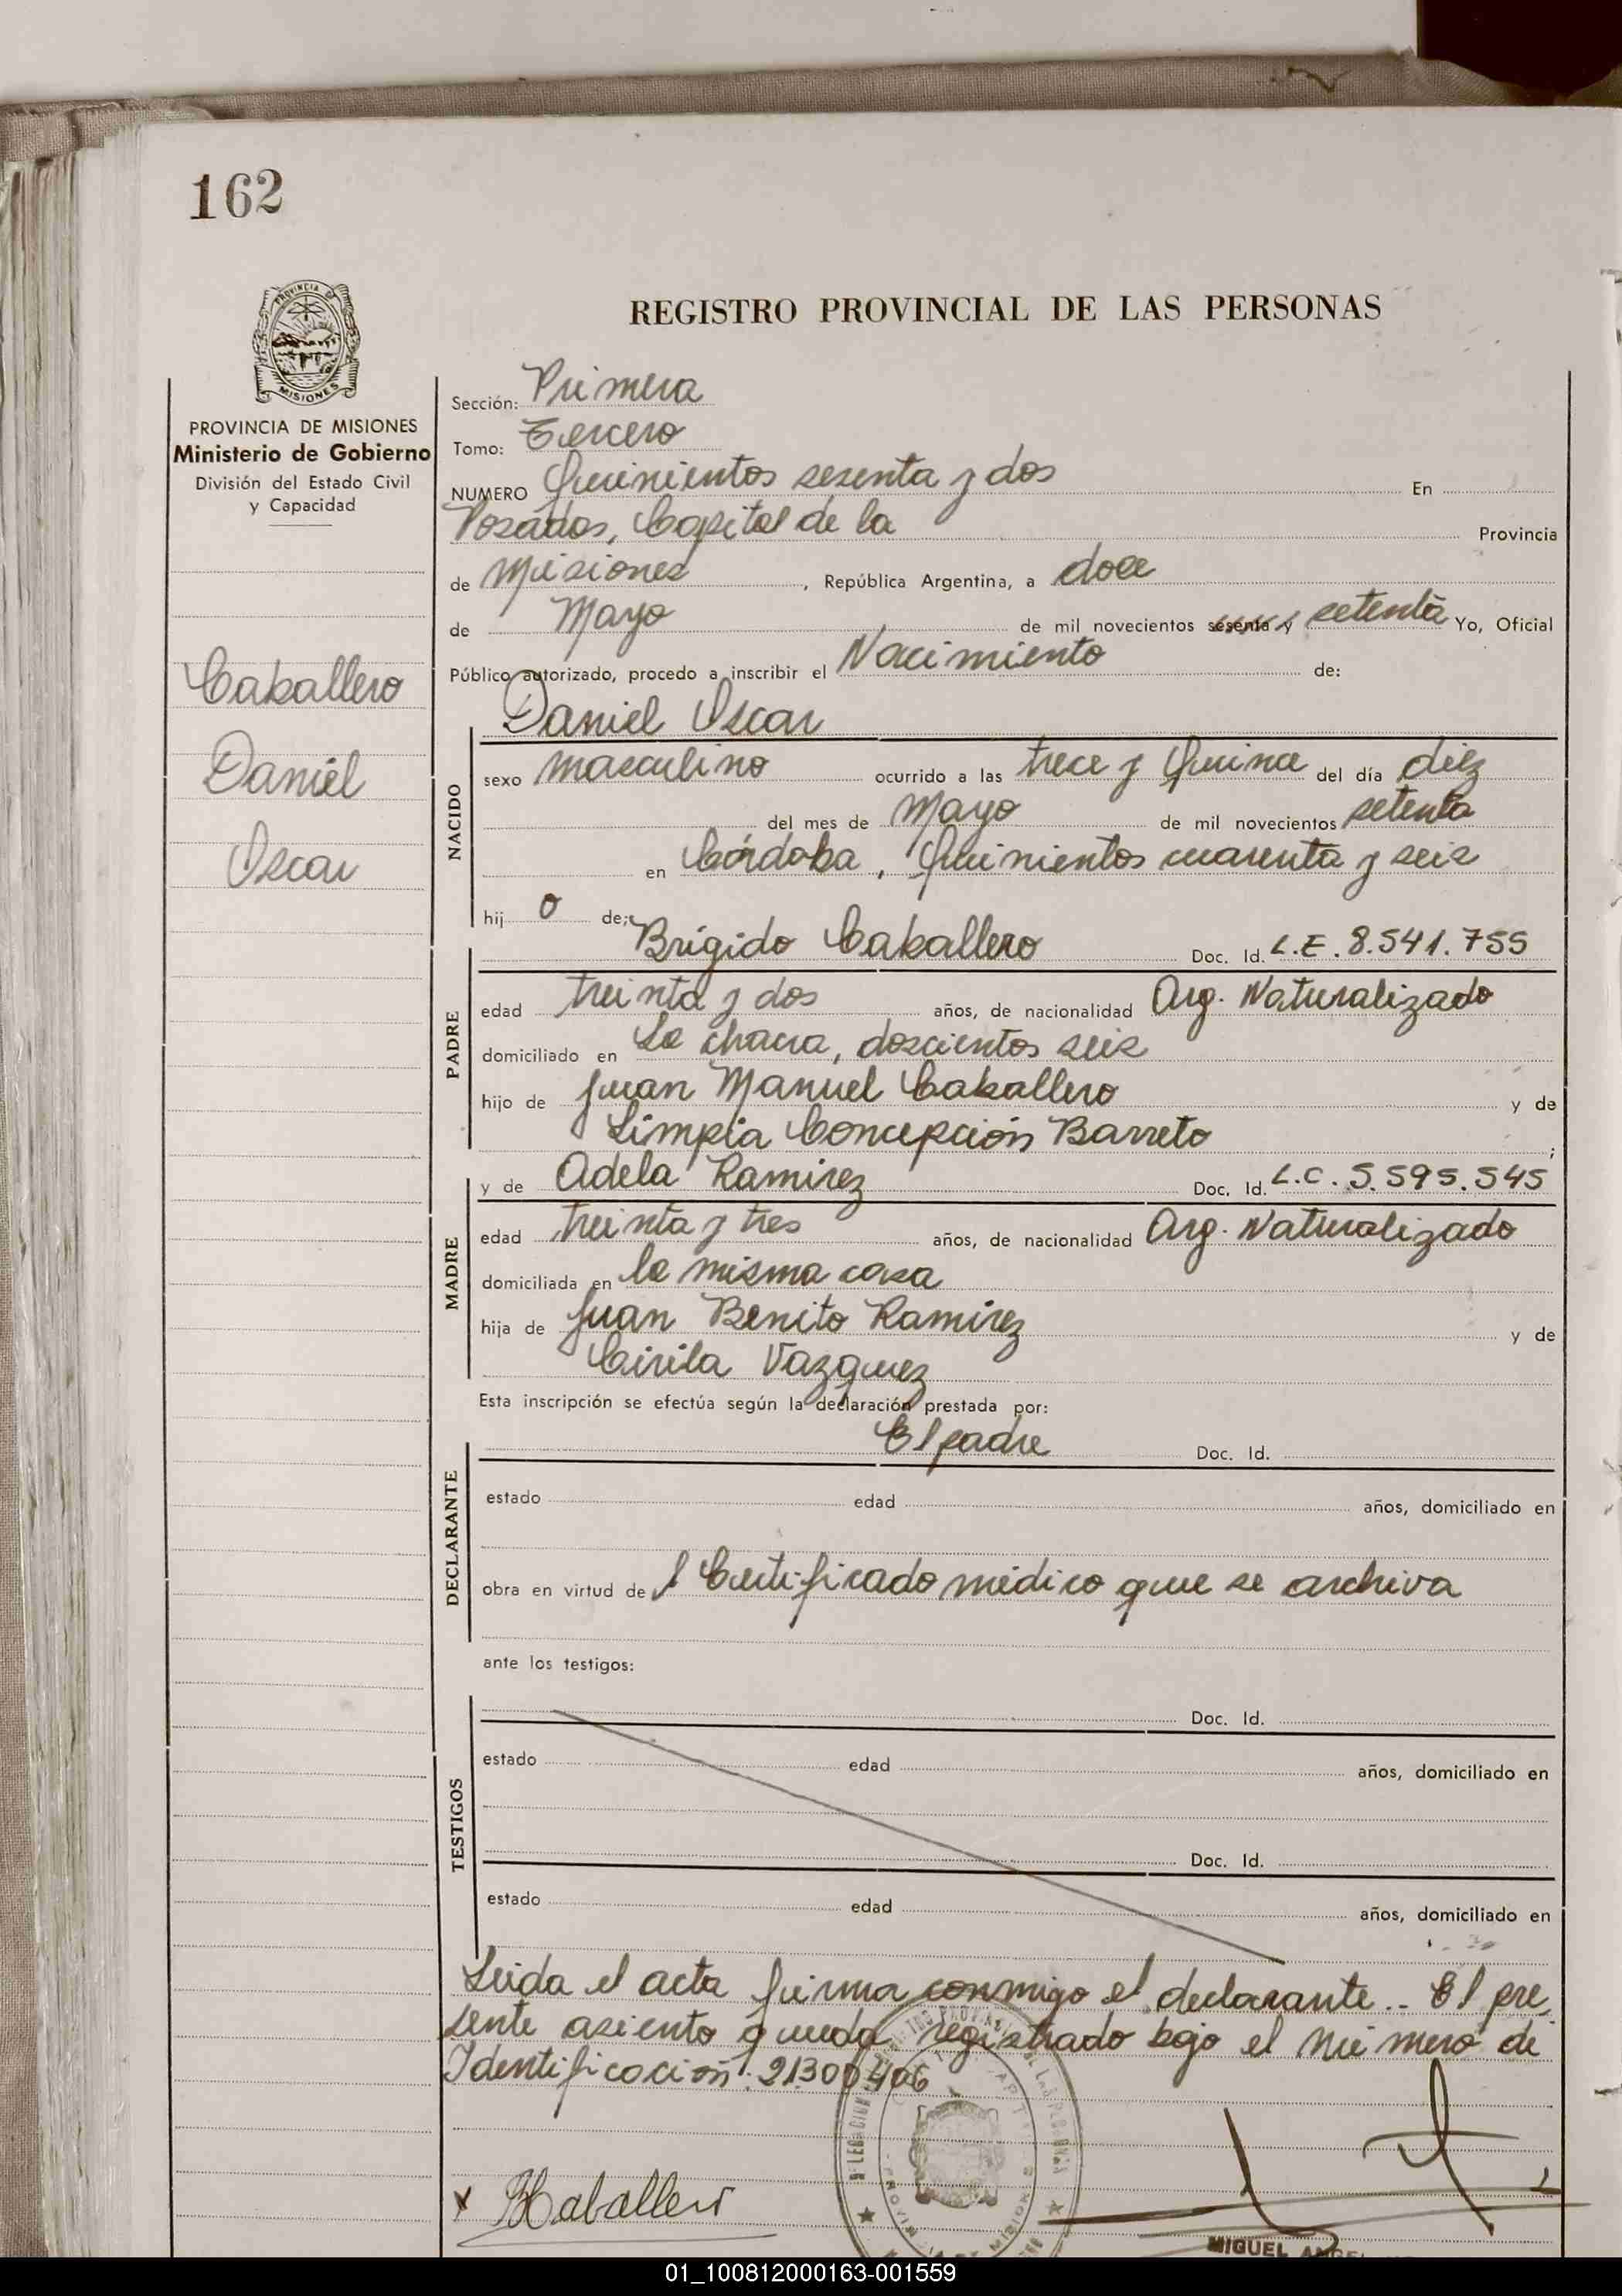 162
PROVINCIA DE
MISIONES
PROVINCIA DE MISIONES
Ministerio de Gobierno
División del Estado Civil
y Capacidad
Caballero
Daniel
Oscar
REGISTRO PROVINCIAL DE LAS PERSONAS
Sección: Primera
Tomo: Tercero
NUMERO Quinientos sesenta y dos En
Posadas, Capital de la Provincia
de Misiones, República Argentina, a doce
de Mayo de mil novecientos sesenta y setenta Yo, Oficial
Público autorizado, procedo a inscribir el Nacimiento de:
Daniel Oscar
NACIDO
sexo masculino ocurrido a las trece y Quince del día diez
del mes de Mayo de mil novecientos setenta
en Córdoba, Quinientos cuarenta y seis
hij o de:
Brígido Caballero Doc. Id. L.E. 8.541.755
PADRE
edad treinta y dos años, de nacionalidad Arg. Naturalizado
domiciliado en La chacra, doscientos seis
hijo de Juan Manuel Caballero y de
Limpia Concepción Barreto ;
y de Adela Ramirez Doc. Id. L.C. 5.595.545
MADRE
edad treinta y tres años, de nacionalidad Arg. Naturalizado
domiciliada en la misma casa
hija de Juan Benito Ramírez y de
Cirila Vazquez
Esta inscripción se efectúa según la declaración prestada por:
El padre Doc. Id.
DECLARANTE
estado edad años, domiciliado en
obra en virtud de l Certificado médico que se archiva
ante los testigos:
TESTIGOS
Doc. Id.
estado edad años, domiciliado en
Doc. Id.
estado edad años, domiciliado en
Leida el acta firma conmigo el declarante.- El pre,
sente asiento queda registrado bajo el número de
Identificación: 21300406
x BCaballero
MIGUEL
01_100812000163-001559